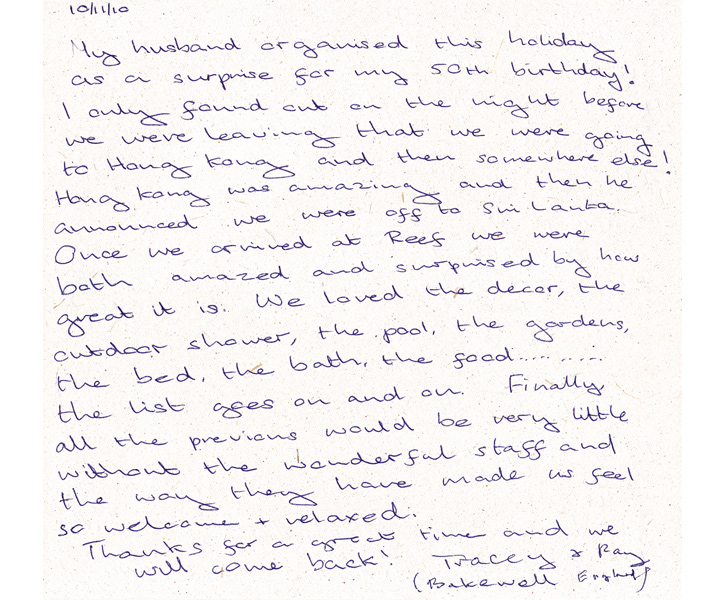 10/11/10
My husband organised this holiday
as a surprise for my 50th birthday!
I only found out on the night before
we were leaving that we were going
to Hong Kong and then somewhere else!
Hong Kong was amazing and then he
announced we were off to Sri Lanka.
Once we arrived at Reef we were
both amazed and surprised by how
great it is. We loved the decor, the
outdoor shower, the pool, the gardens,
the bed, the bath, the food..... .....
the list goes on and on. Finally
all the previous would be very little
without the wonderful staff and
the way they have made us feel
so welcome + relaxed.
Thanks for a great time and we
will come back! Tracey & Ray
(Bakewell England)